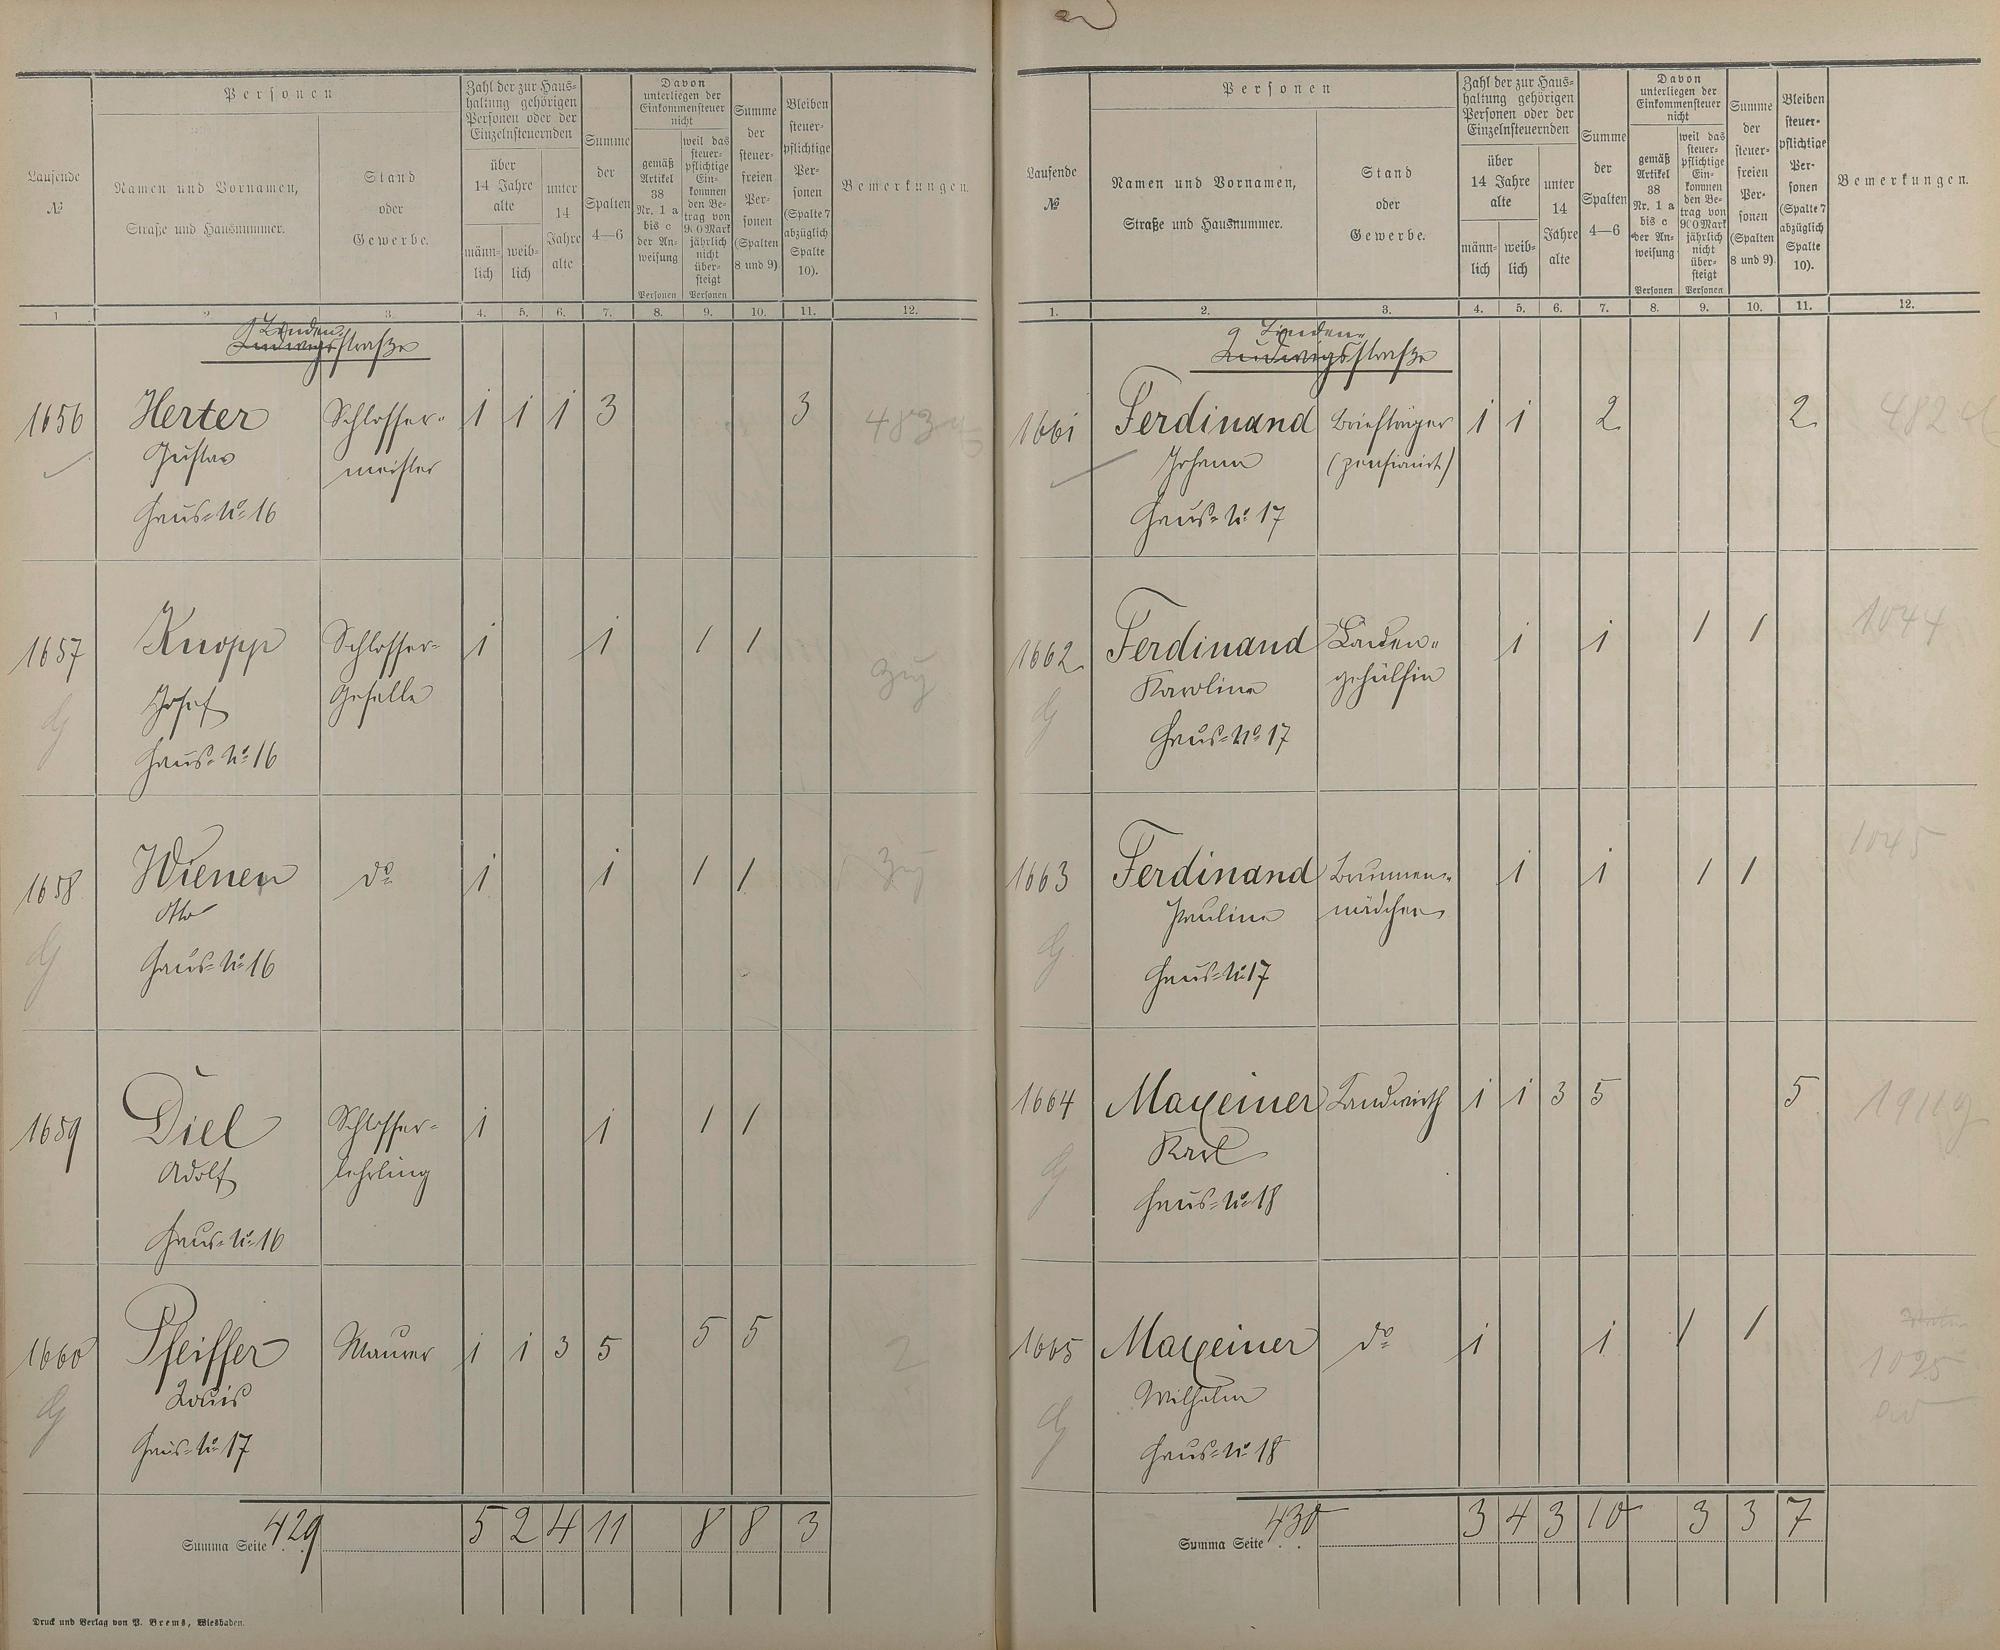 Laufende
№
Personen
Namen und Vornamen,
Straße und Hausnummer.
Stand
oder
Gewerbe.
Zahl der zur Haus-
haltung gehörigen
Personen oder der
Einzelnsteuernden
über
14 Jahre
alte
männ-
lich
weib-
lich
unter
14
Jahre
alte
Summe
der
Spalten
4—6
Davon
unterliegen der
Einkommensteuer
nicht
gemäß
Artikel
38
Nr. 1 a
bis c
der An-
weisung
Personen
weil das
steuer-
pflichtige
Ein-
kommen
den Be-
trag von
900 Mark
jährlich
nicht
über-
steigt
Personen
Summe
der
steuer-
freien
Per-
sonen
(Spalten
8 und 9)
Bleiben
steuer-
pflichtige
Per-
sonen
(Spalte 7
abzüglich
Spalte
10).
Bemerkungen.
1 2. 3. 4. 5. 6. 7. 8. 9. 10. 11. 12.
Linden
Ludwigsstraße
1656 Herter Schlosser- 1 1 1 3 3 483
Gustav meister
Haus-No 16
1657 Knopp Schlosser- 1 1 1 1
Josef Geselle
Haus-No 16
1658 Wienen do 1 1 1 1
Otto
Haus-No 16
1659 Diel Schlosser- 1 1 1 1
Adolf lehrling
Haus-No 16
1660 Pfeiffer Maurer 1 1 3 5 5 5 2
Louis
Haus-No 17
Summa Seite 429 5 2 4 11 8 8 3
Druck und Verlag von P. Brems, Wiesbaden.
Laufende
№
Personen
Namen und Vornamen,
Straße und Hausnummer.
Stand
oder
Gewerbe.
Zahl der zur Haus-
haltung gehörigen
Personen oder der
Einzelnsteuernden
über
14 Jahre
alte
männ-
lich
weib-
lich
unter
14
Jahre
alte
Summe
der
Spalten
4—6
Davon
unterliegen der
Einkommensteuer
nicht
gemäß
Artikel
38
Nr. 1 a
bis c
der An-
weisung
Personen
weil das
steuer-
pflichtige
Ein-
kommen
den Be-
trag von
900 Mark
jährlich
nicht
über-
steigt
Personen
Summe
der
steuer-
freien
Per-
sonen
(Spalten
8 und 9)
Bleiben
steuer-
pflichtige
Per-
sonen
(Spalte 7
abzüglich
Spalte
10).
Bemerkungen.
1. 2. 3. 4. 5. 6. 7. 8. 9. 10. 11. 12.
Linden
Ludwigsstraße
1661 Ferdinand Briefträger 1 1 2 2 482
Johann (pensionirt)
Haus-No 17
1662 Ferdinand Laden- 1 1 1 1 1044
Karoline gehülfin
Haus-No 17
1663 Ferdinand Brunnen- 1 1 1 1 1045
Pauline mädchen
Haus-No 17
1664 Maxeiner Landwirth 1 1 3 5 5
Karl
Haus-No 18
1665 Maxeiner do 1 1 1 1 1025
Wilhelm
Haus-No 18
Summa Seite 430 3 4 3 10 3 3 7